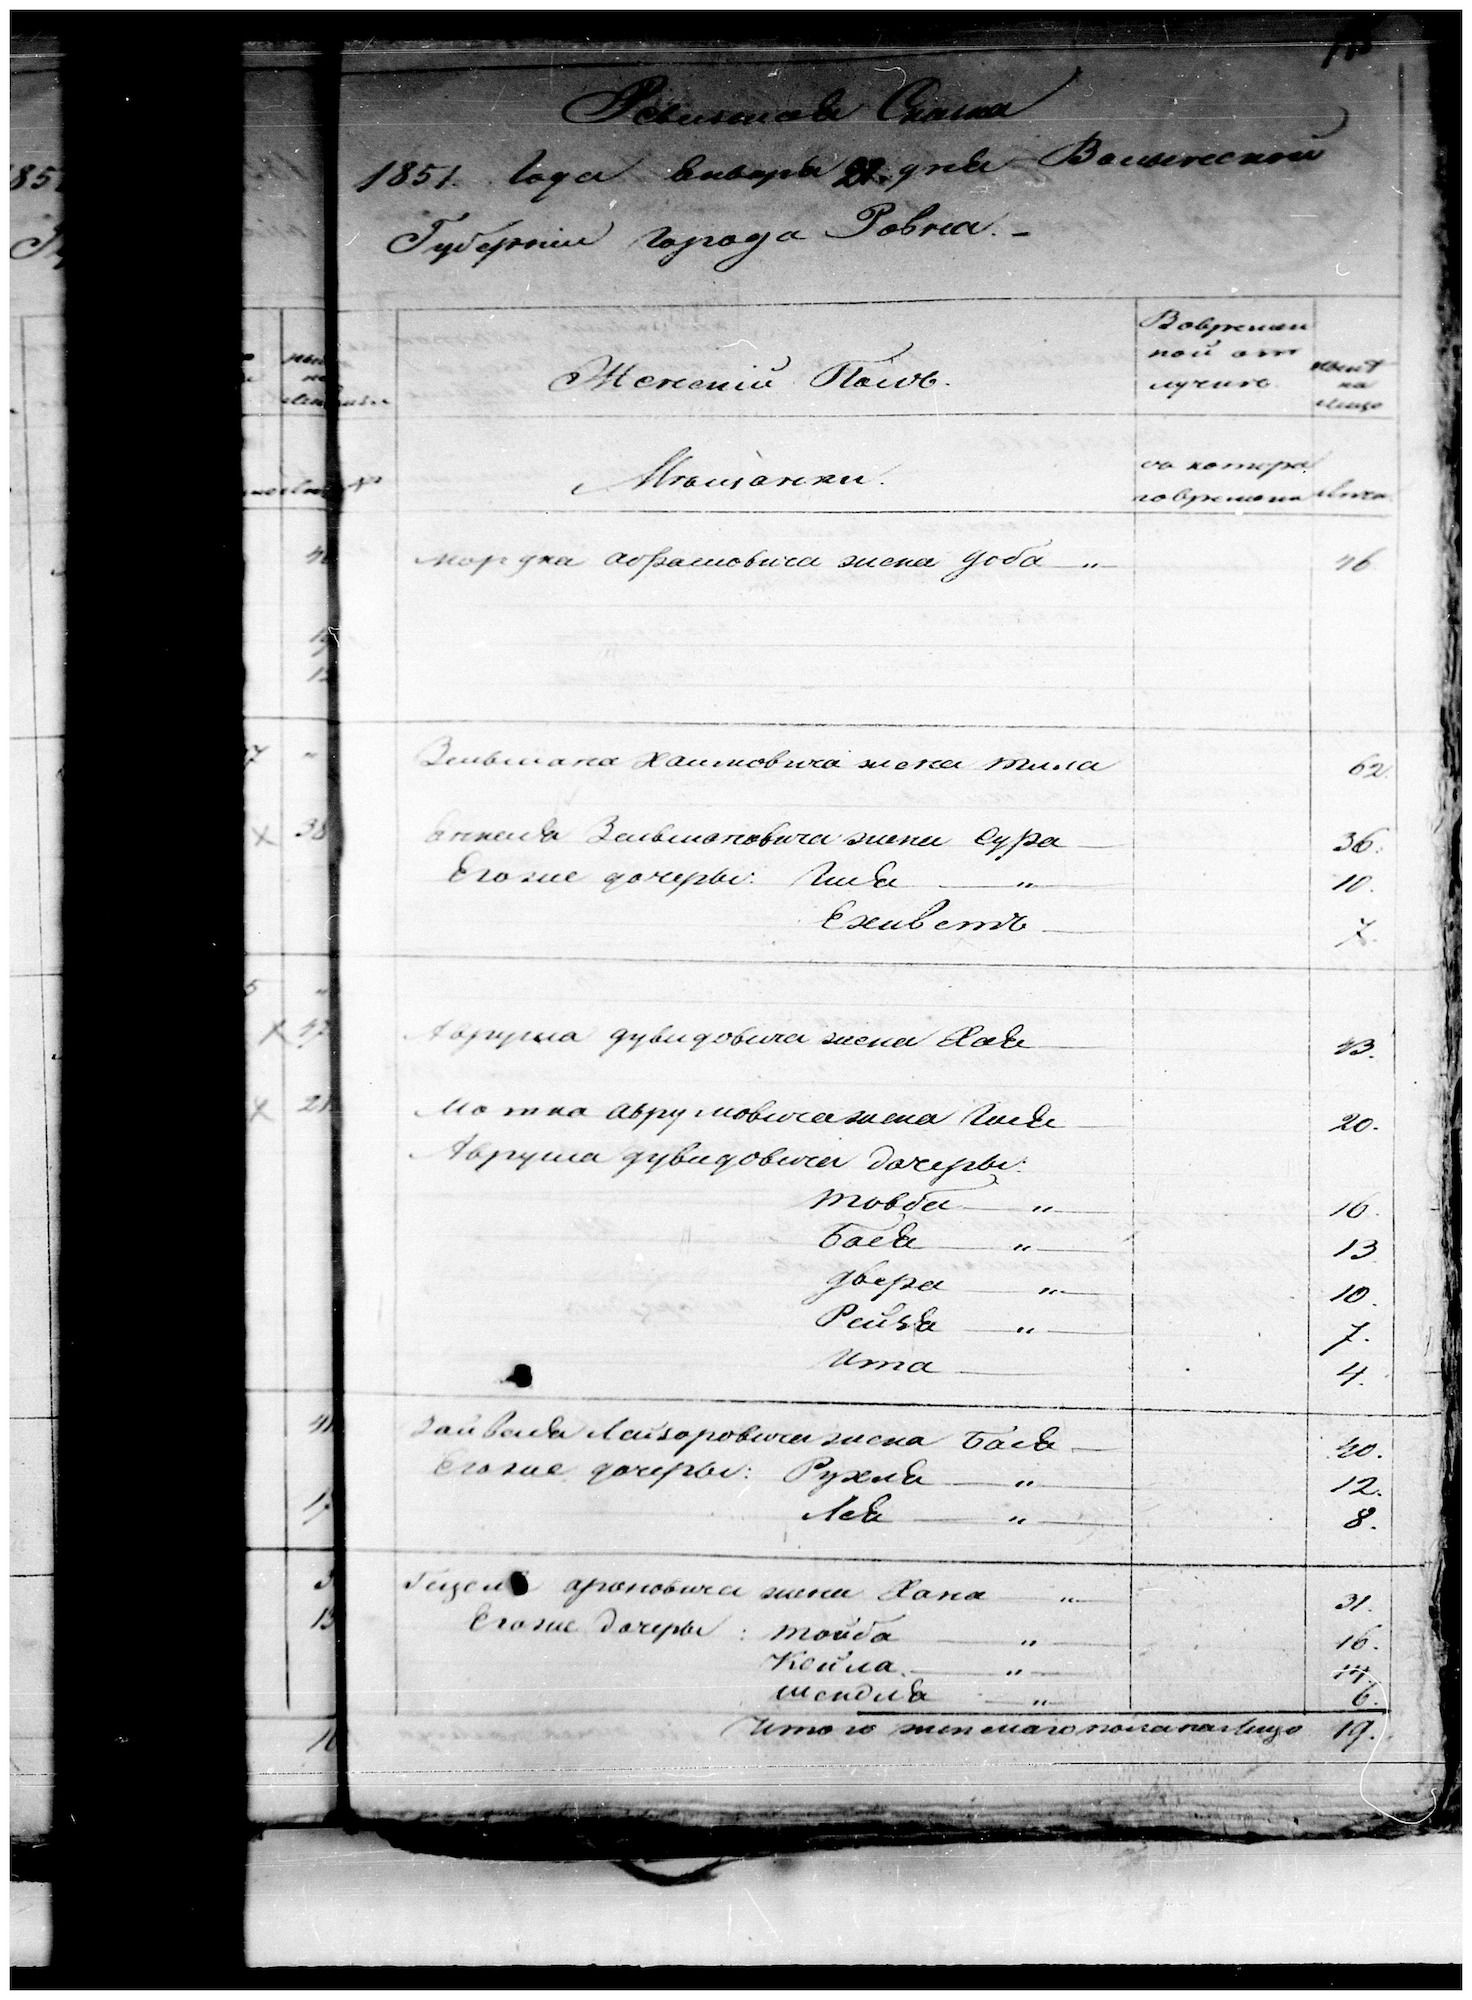 Ревизская Сказка
1851. Года Января 22. дня Волынской
Губерніи города Ровна.
Женскій Полъ.
Вовремен
ной от
лучкѣ.
нынѣ
на
лицо
Мѣщанки.
съ котора
го времени
Лѣта
Мордка Абрамовича жена Доба " 46
Зельмана Хаимовича жена Тила 62.
Зельмановича жена Сура 36.
Егоже дочеры: Гися " 10.
Ехиветъ 7.
Аврума Дувидовича жена Хая 43.
Мотка Аврумовича жена Гися 20.
Аврума Дувидовича дочеры:
Товба " 16.
Бася " 13
Двера " 10.
Рейзя " 7.
Ита 4.
Лейзоровича жена Бася 40.
Егоже дочеры: Рухля " 12.
Лея " 8.
Гецеля Ароновича жена Хана " 31.
Егоже дочеры: Тойба " 16.
Кейла. " 14.
Шендля " 6.
Итого женскаго пола налицо 19.